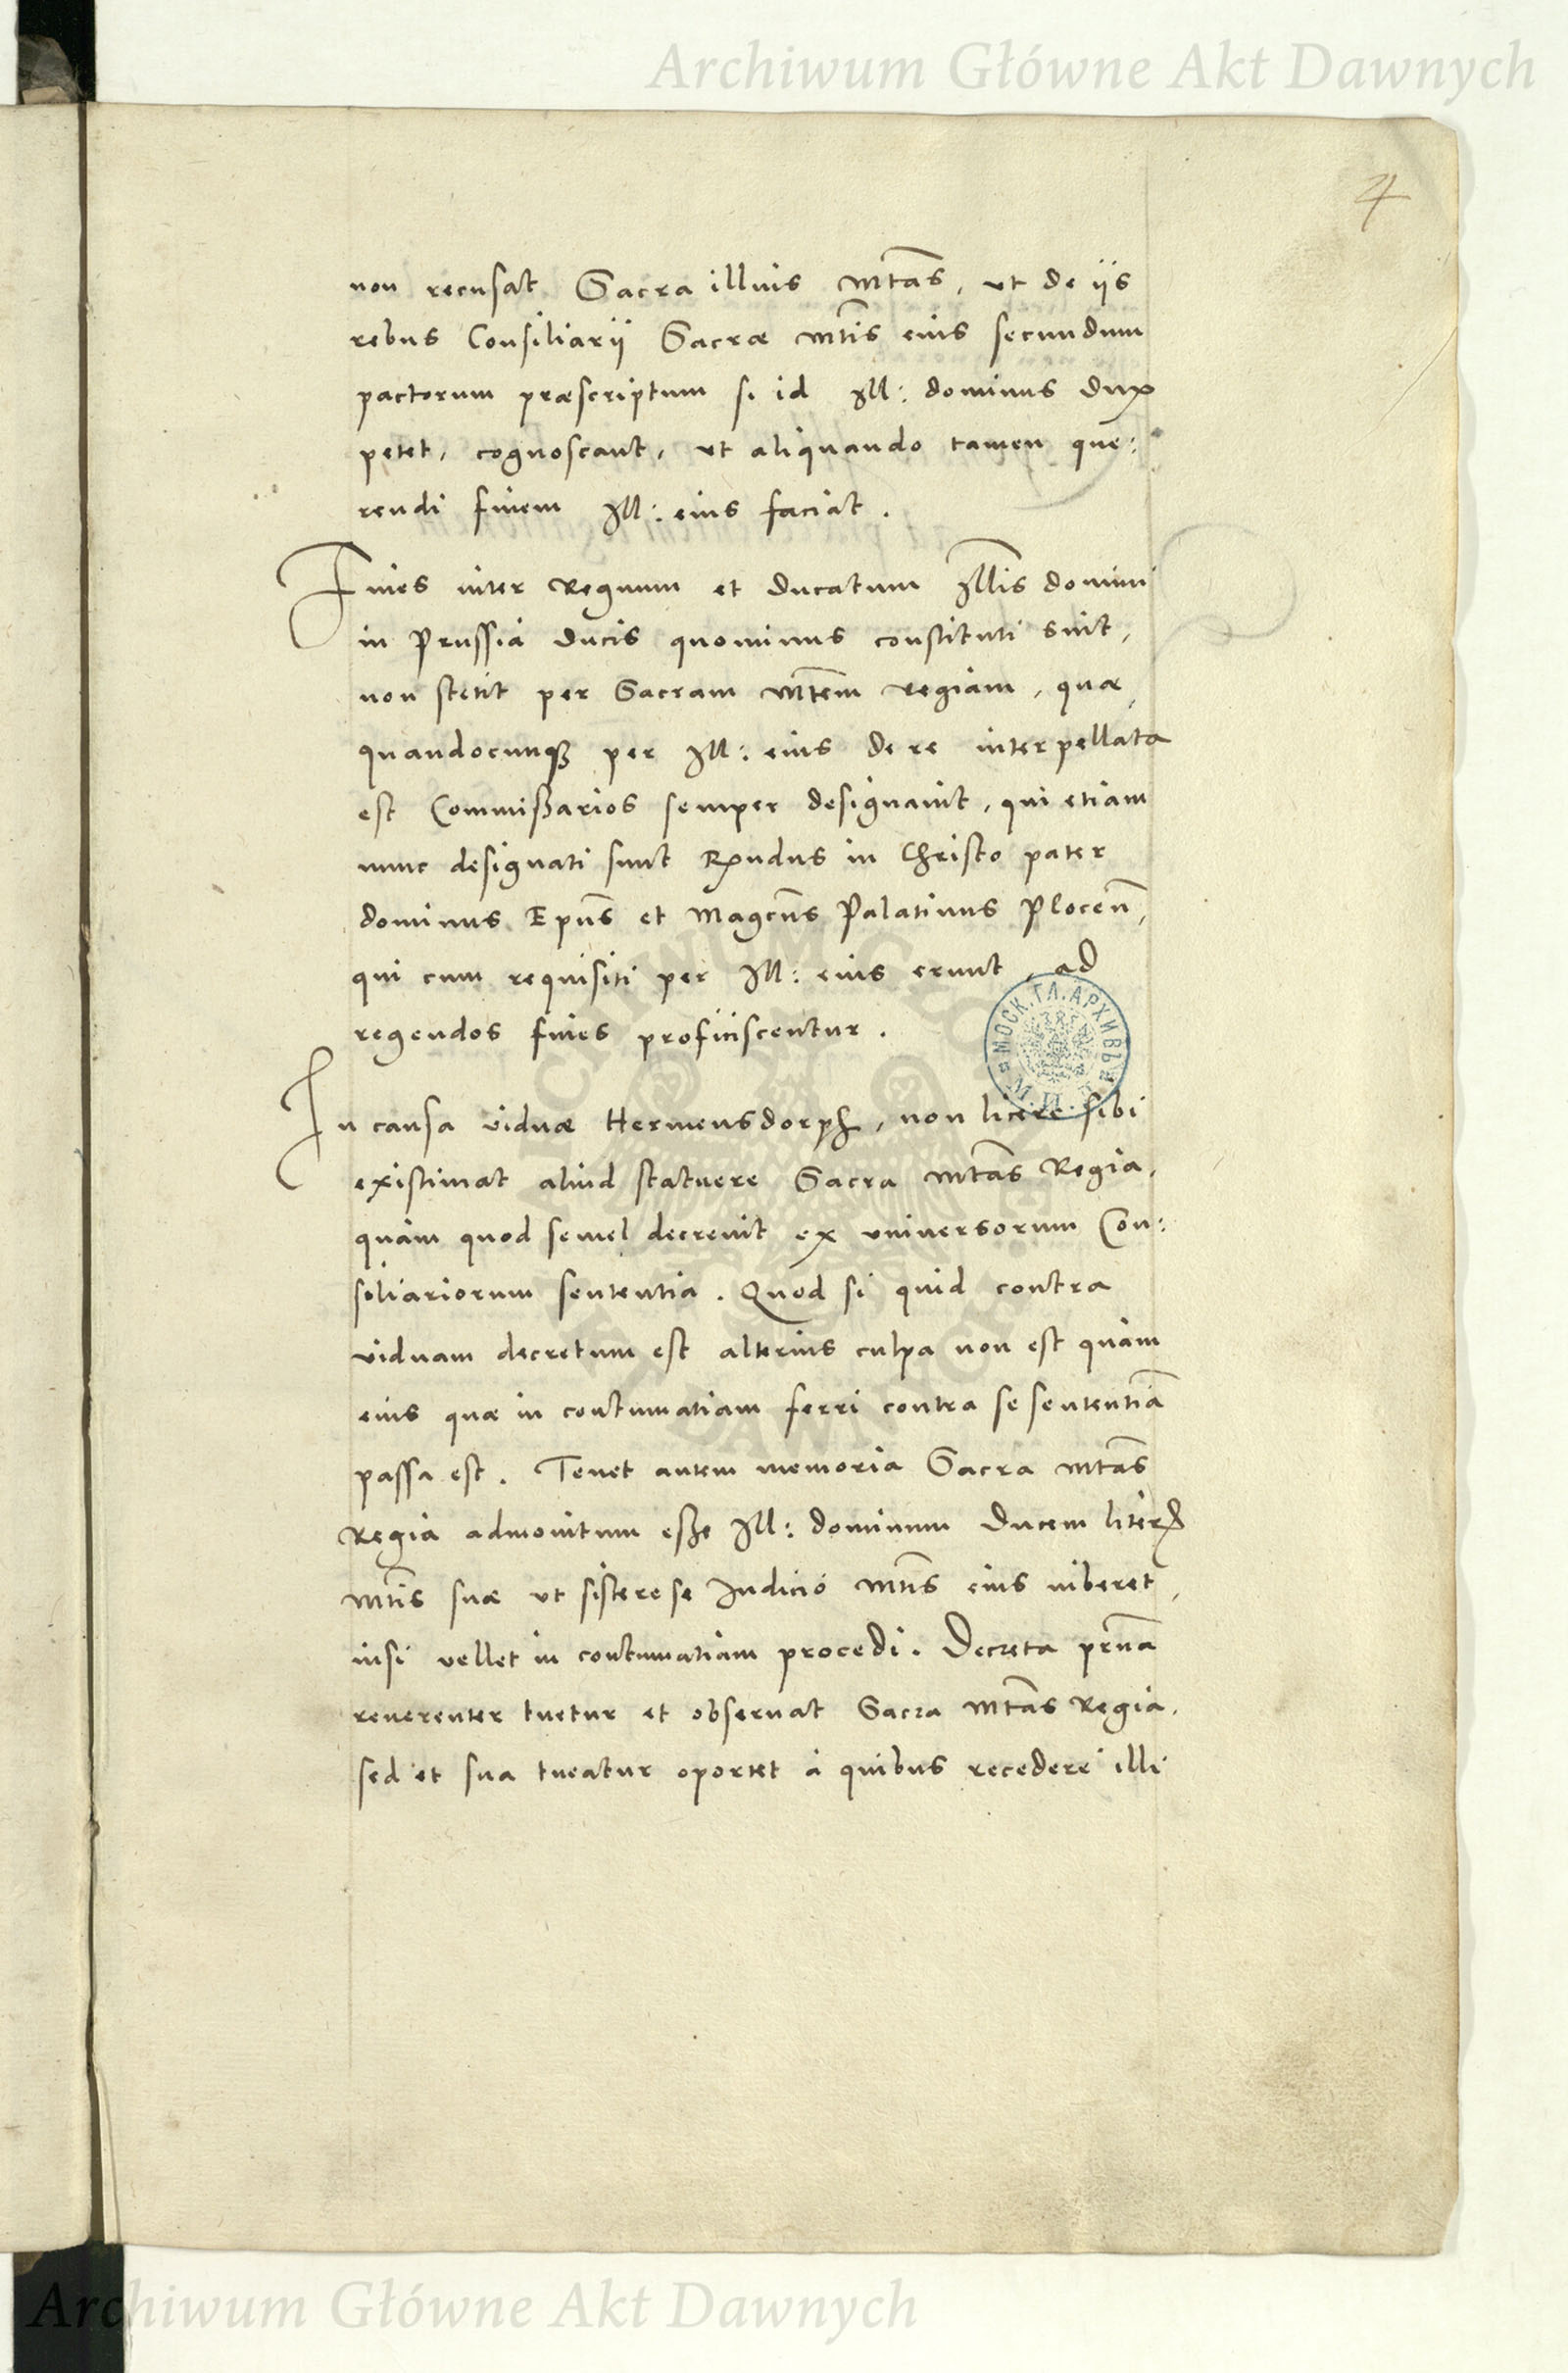 Archiwum Główne Akt Dawnych
4
non recusat Sacra illius Mtas, ut de iis
rebus Consiliarij Sacræ Mtis eius secundum
pactorum præscriptum si id Ill: dominus dux
petet, cognoscant, ut aliquando tamen que:
rendi finem Ill: eius faciat.
Fines inter Regnum et Ducatum Illis domini
in Prussia Ducis quominus constituti sint,
non stetit per Sacram Mtem regiam, quæ,
quandocunq3 per Ill: eius de re interpellata
est Commißarios semper designavit, qui etiam
nunc designati sunt Rñdus in Christo pater
dominus Epus et Magcus Palatinus Plocen,
qui cum requisiti per Ill: eius erunt, ad
regendos fines proficiscentur.
МОСК. ГЛ. АРХИВЪ
In causa viduæ Hermensdorph, non licere sibi
existimat aliud statuere Sacra Mtas Regia,
quàm quod semel decrevit ex universorum Con:
siliariorum sententia. Quod si quid contra
viduam decretum est alterius culpa non est quàm
eius quæ in contumatiam ferri contra se sententiã
passa est. Tenet autem memoria Sacra Mtas
Regia admonitum eße Ill: dominum Ducem literis
Mtis suæ ut sistere se Iudicio Mtis eius iuberet,
nisi vellet in contumatiam procedi. Decreta prna
reverenter tuetur et observat Sacra Mtas Regia,
sed et sua tueatur oportet à quibus recedere illi
Archiwum Główne Akt Dawnych